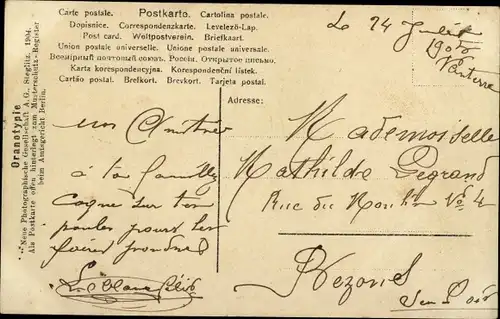 Carte postale. Postkarte. Cartolina postale.
Dopisnice. Correspondenzkarte. Levelező-Lap.
Post card. Weltpostverein. Briefkaart.
Union postale universelle. Unione postale universale.
Всемірный почтовый союз. Россія. Открытое письмо.
Karta korespondencyjna. Korespondenční listek.
Cartão postal. Brefkort. Brevkort. Tarjeta postal.
Le 24 Juillet
1906
Nanterre
Oranotypie
Neue Photographische Gesellschaft A.G., Steglitz. 1904.
Als Postkarte offen hinterlegt zum Musterschutz-Register
beim Amtsgericht Berlin.
Adresse:
à ta famille
cogne sur ton
pour les
faire pondre
Mademoiselle
Mathilde Legrand
Rue du Moulin No 4
Bezons